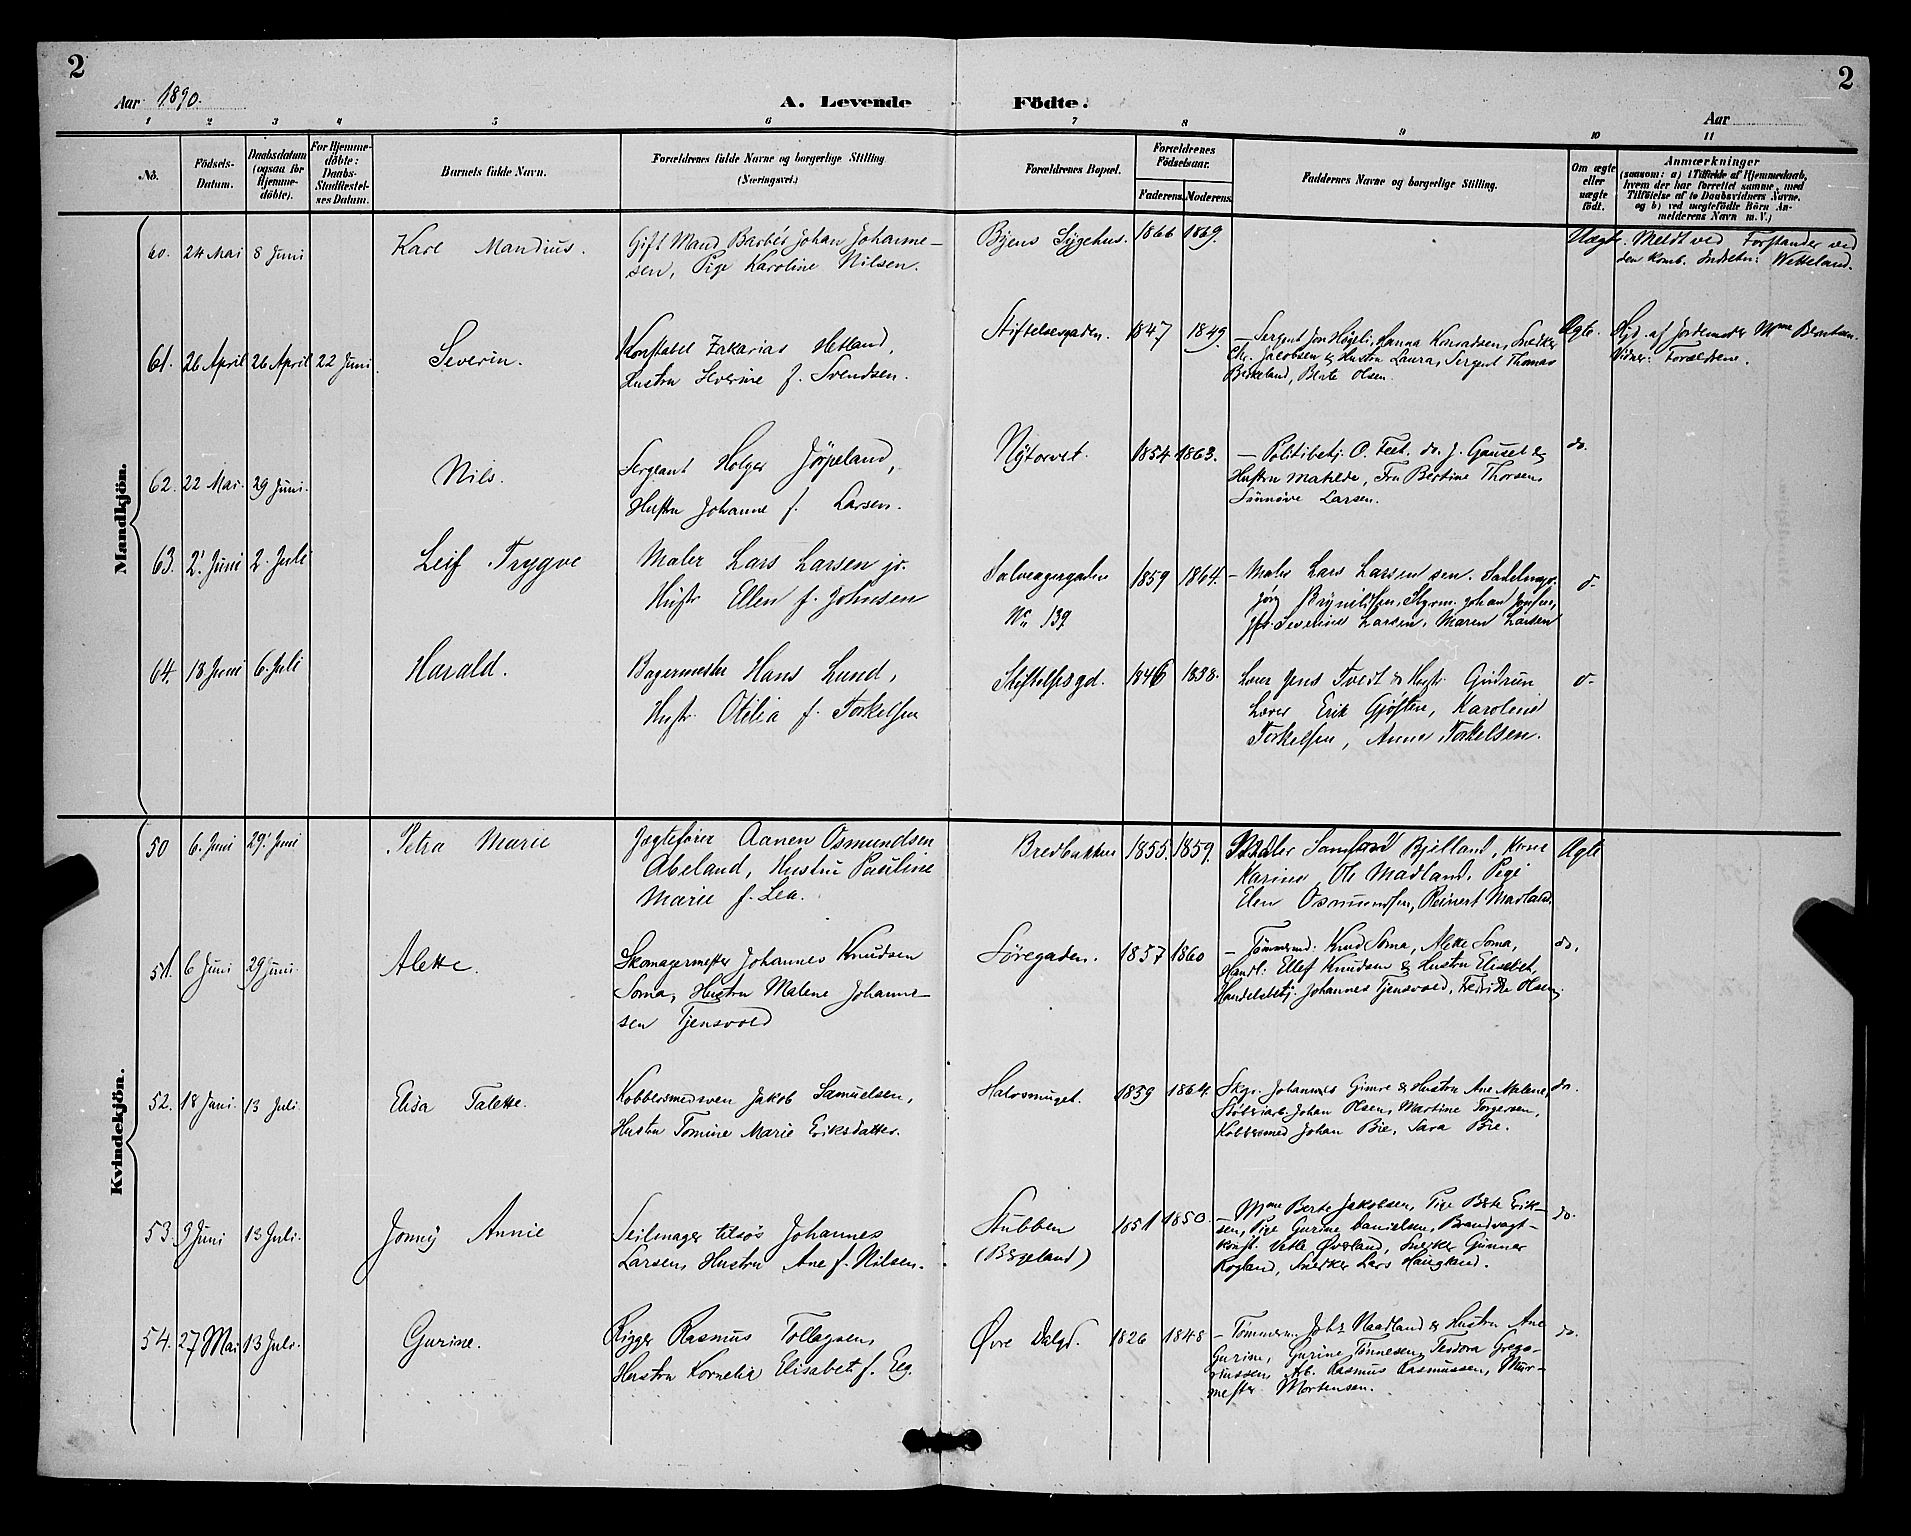 2
2
Aar 1890.
A. Levende Födte.
Aar
1 2 3 4 5 6 7 8 9 10 11
No.
Födsels-Datum.
Daabsdatum (ogsaa for Hjemme-döbte).
For Hjemme-döbte: Daabs-Stadfæstel-ses Datum.
Barnets fulde Navn.
Forældrenes fulde Navne og borgerlige Stilling
(Næringsvei.)
Forældrenes Bopæl.
Forældrenes Födselsaar.
Faderens. Moderens.
Faddernes Navne og borgerlige Stilling.
Om ægte eller uægte födt.
Anmærkninger
(saasom: a) i Tilfælde af Hjemmedaab, hvem der har forrettet samme, med Tilföielse af to Daabsvidners Navne. og b) ved uægtefödte Börn An-melderens Navn m. V.)
Mandkjön.
60. 24 Mai 8 Juni Karl Mandius. Gift Mand Johan Johanne-
sen, Pige Karoline Nilsen.
Byens Sygehus. 1866 1869. Uægte. Meldt ved Forstander ved
den komb. Indretn: Wetteland.
61. 26 April 26 April 22 Juni Severin. Konstabel Zakarias Hetland,
Hustru Severine f. Svendsen.
Stiftelsesgaden. 1847 1849. – Sergent Jon Høgeli, Hanna Konradsen, Snedker
Chr. Jacobsen & Hustru Laura, Sergent Thomas
Birkeland, Berte Olsen.
Ægte. Hjd. af Jordemoder Mme Berntsen.
Vidner: Forældrene.
62. 22 Mai. 29 Juni. Nils. Sergeant Holger Jörpeland,
Hustru Johanne f. Larsen.
Nytorvet. 1854 1863. – Politibetj. O. Teet. do. J. Gausel &
Hustru Matilde, Fru Bertine Thorsen,
Sünnöve Larsen.
do.
63. 2 Juni 2. Juli Leif Trygve Maler Lars Larsen jr.
Hustr Ellen f. Johnsen
No 139
1859 1864. – Maler Lars Larsen sen.
Severine Larsen, Maren Larsen
64. 18 Juni 6. Juli Harald. Bagermester Hans Lund,
Hustr. Otilia f. Torkelsen
Stiftelsesgd. 1846 1838. Lærer Jens Tvedt & Hustr. Gudrun
Lærer Erik Gjøsten, Karoline
Torkelsen, Anna Torkelsen.
Kvindekjön.
50 6. Juni 29 Juni Petra Marie Jægtefører Aanen Osmundsen
Abeland, Hustru Pauline
Marie f. Lea.
Bredbakken 1855. 1859. Bjelland, Kone
Karine, Ole Madland, Pige
Elen Osmundsen, Reinert Madland.
Ægte
51. 6 Juni 29 Juni. Alette. Skomagermester Johannes Knudsen
Soma, Hustru Malene Johanne-
sen Tjensvold
Søregaden. 1857 1860 – Tømmermd: Knud Soma, Alette Soma,
Handl: Ellef Knudsen & Hustru Elisabet,
Handelsbetj. Johannes Tjensvold, Fredrikke Olsen.
do.
52. 18 Juni. 13 Juli. Elisa Talette. Kobbersmedsven Jakob Samuelsen,
Hustru Tomine Marie Eriksdatter.
Halvsmuget. 1859 1864. Skgr. Johannes Gimre & Hustru Ane Malene,
Støberiarb. Johan Olsen, Martine Torgersen,
Kobbersmed Johan Bie, Sara Bie.
do.
53. 9 Juni 13 Juli. Jonny Annie Seilmager tilsøs Johannes
Larsen, Hustru Ane f. Nilsen.
Stubben
(Bergeland)
1851 1850. – Mme Berte Jakobsen, Pige Berte Erik-
sen, Pige Gurine Danielsen, Brandvagt-
konst. Vetle Øverland, Snedker Gunnar
Rogland, Snedker Lars Haugland.
do.
54. 27 Mai 13 Juli. Gurine. Rigger Rasmus Tollagsen,
Hustru Kornelia Elisabet f. Eeg.
Øvre Dalgd. 1826 1848 – Tømmerm. Naadland & Hustru Ane
Gurine, Gurine Tønnesen, Teodora Grego-
riussen, Arb. Rasmus Rasmussen, Mur-
mester Mortensen.
do.